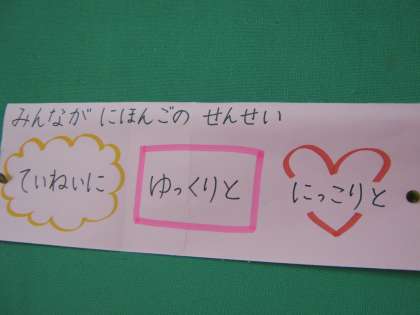 みんなが にほんごの せんせい
ていねいに ゆっくりと にっこりと